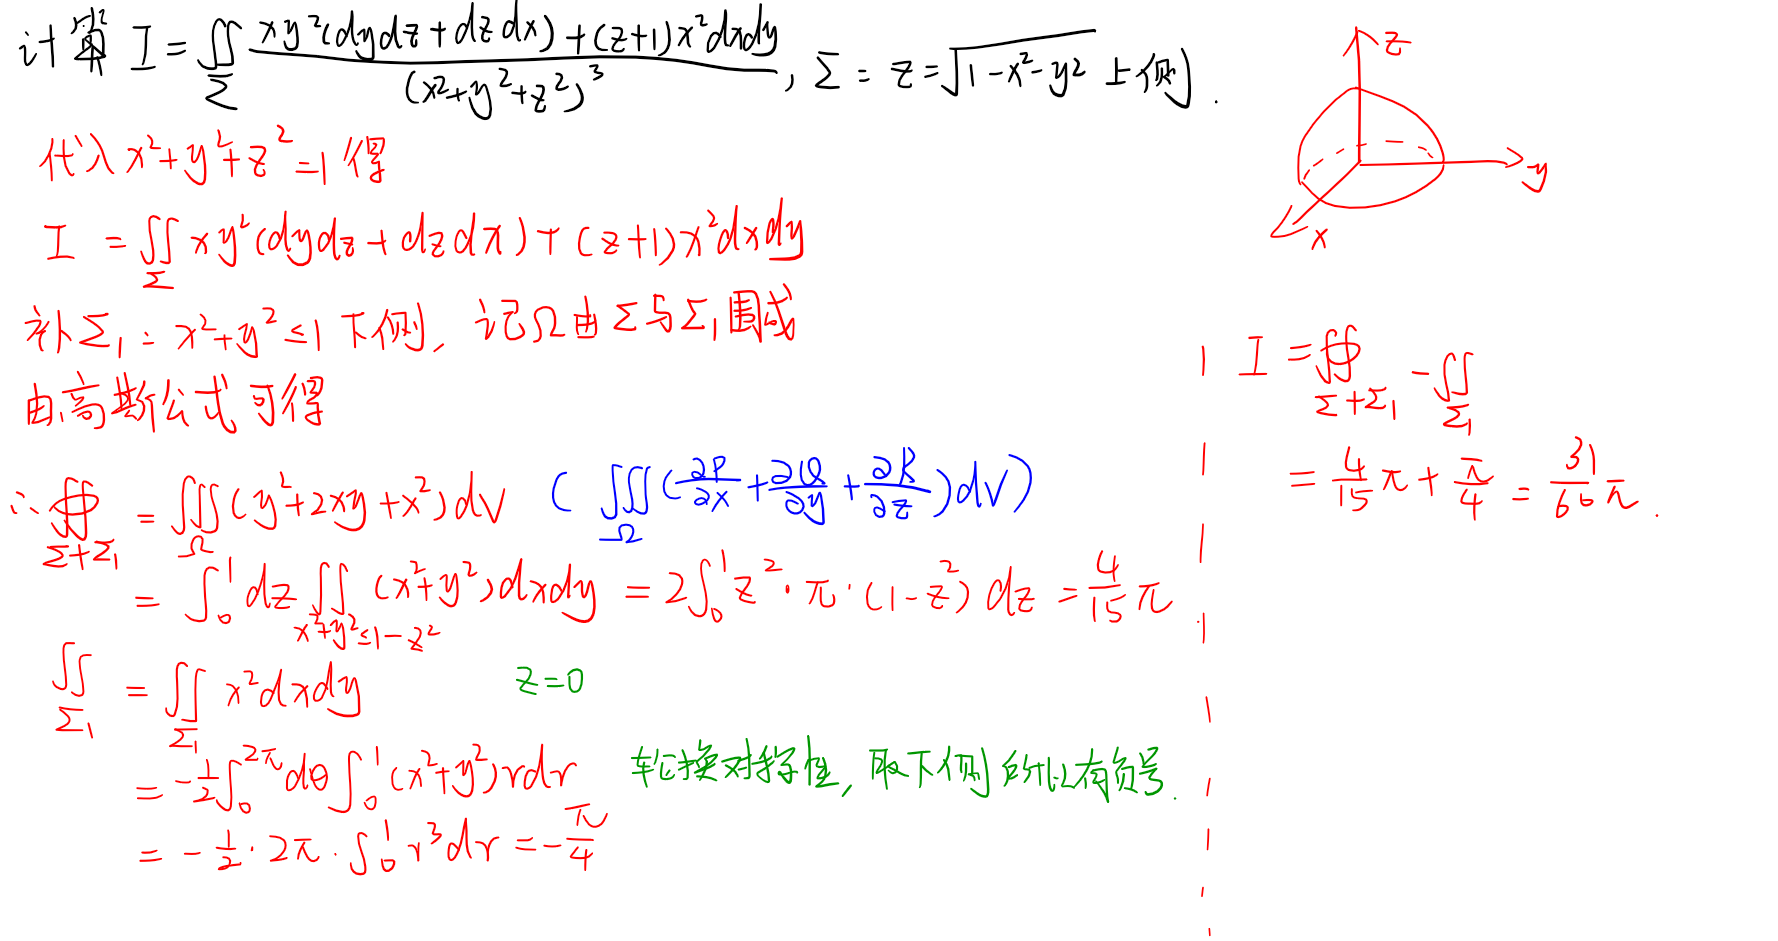 计算 I = ∬_Σ (xy²(dydz + dzdx) + (z+1)x²dxdy) / (x²+y²+z²)³ , Σ : z = √(1-x²-y²) 上侧 .
代入 x²+y²+z²=1 得
I = ∬_Σ xy²(dydz + dzdx) + (z+1)x²dxdy
补Σ₁ : x²+y² ≤ 1 下侧, 记Ω由Σ与Σ₁围成
由高斯公式可得
∴ ∯_{Σ+Σ₁} = ∭_Ω (y²+2xy+x²)dV ( ∭_Ω (∂P/∂x + ∂Q/∂y + ∂R/∂z)dV )
= ∫₀¹ dz ∬_{x²+y²≤1-z²} (x²+y²)dxdy = 2∫₀¹ z²·π·(1-z²) dz = 4/15 π
∬_{Σ₁} = ∬_{Σ₁} x²dxdy z=0
= -1/2 ∫₀^{2π} dθ ∫₀¹ (x²+y²)rdr 轮换对称性, 取下侧所以有负号.
= -1/2 · 2π · ∫₀¹ r³dr = -π/4
I = ∯_{Σ+Σ₁} - ∬_{Σ₁}
= 4/15 π + π/4 = 31/60 π .
z
y
x